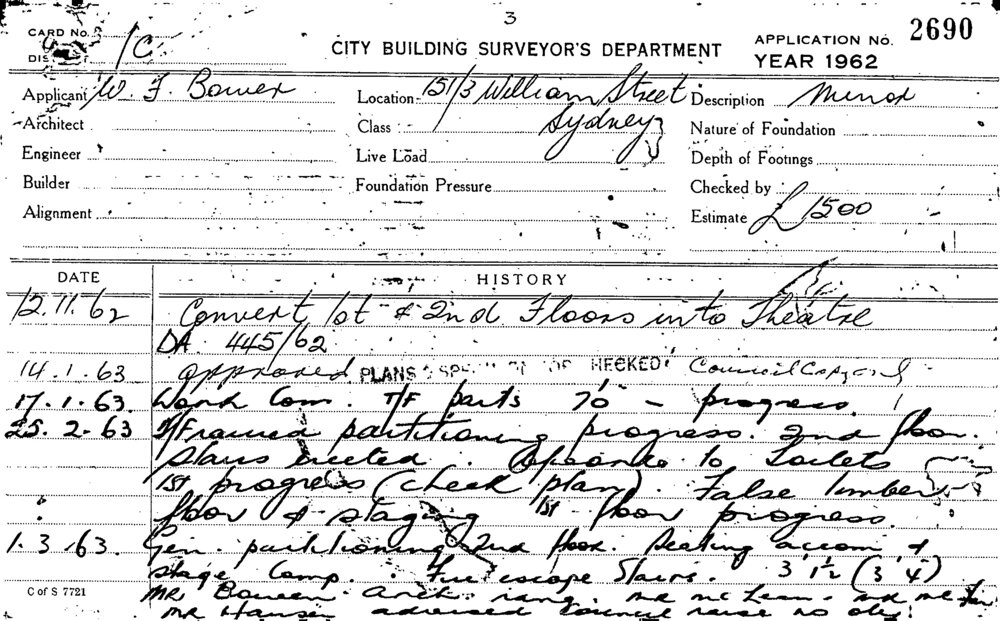 3
CARD No.
DIS
/C
CITY BUILDING SURVEYOR'S DEPARTMENT
APPLICATION No. 2690
YEAR 1962
Applicant W. F. Bowen
Location 151/3 William Street
Sydney
Description Minor
Architect
Class
Nature of Foundation
Engineer
Live Load
Depth of Footings
Builder
Foundation Pressure
Checked by
Alignment
Estimate £1500
DATE HISTORY
12.11.62 Convert 1st & 2nd Floors into Theatre
DA. 445/62
14.1.63 approved PLANS CHECKED Council Copy
17.1.63. Work Com. T/F parts - progress.
25.2.63 T/Framed partitioning progress. 2nd floor.
Stairs erected. to Toilets
1st progress (check plan). False timber
floor & staging 1st floor progress.
1.3.63. Gen. partitioning 2nd floor. Seating accom &
stage Comp. Fire escape Stairs. 3' 1½ (3' 4")
C of S 7721
MR Arch. rang. MR Mc Lean
MR Hansen advised Council raise no obj.